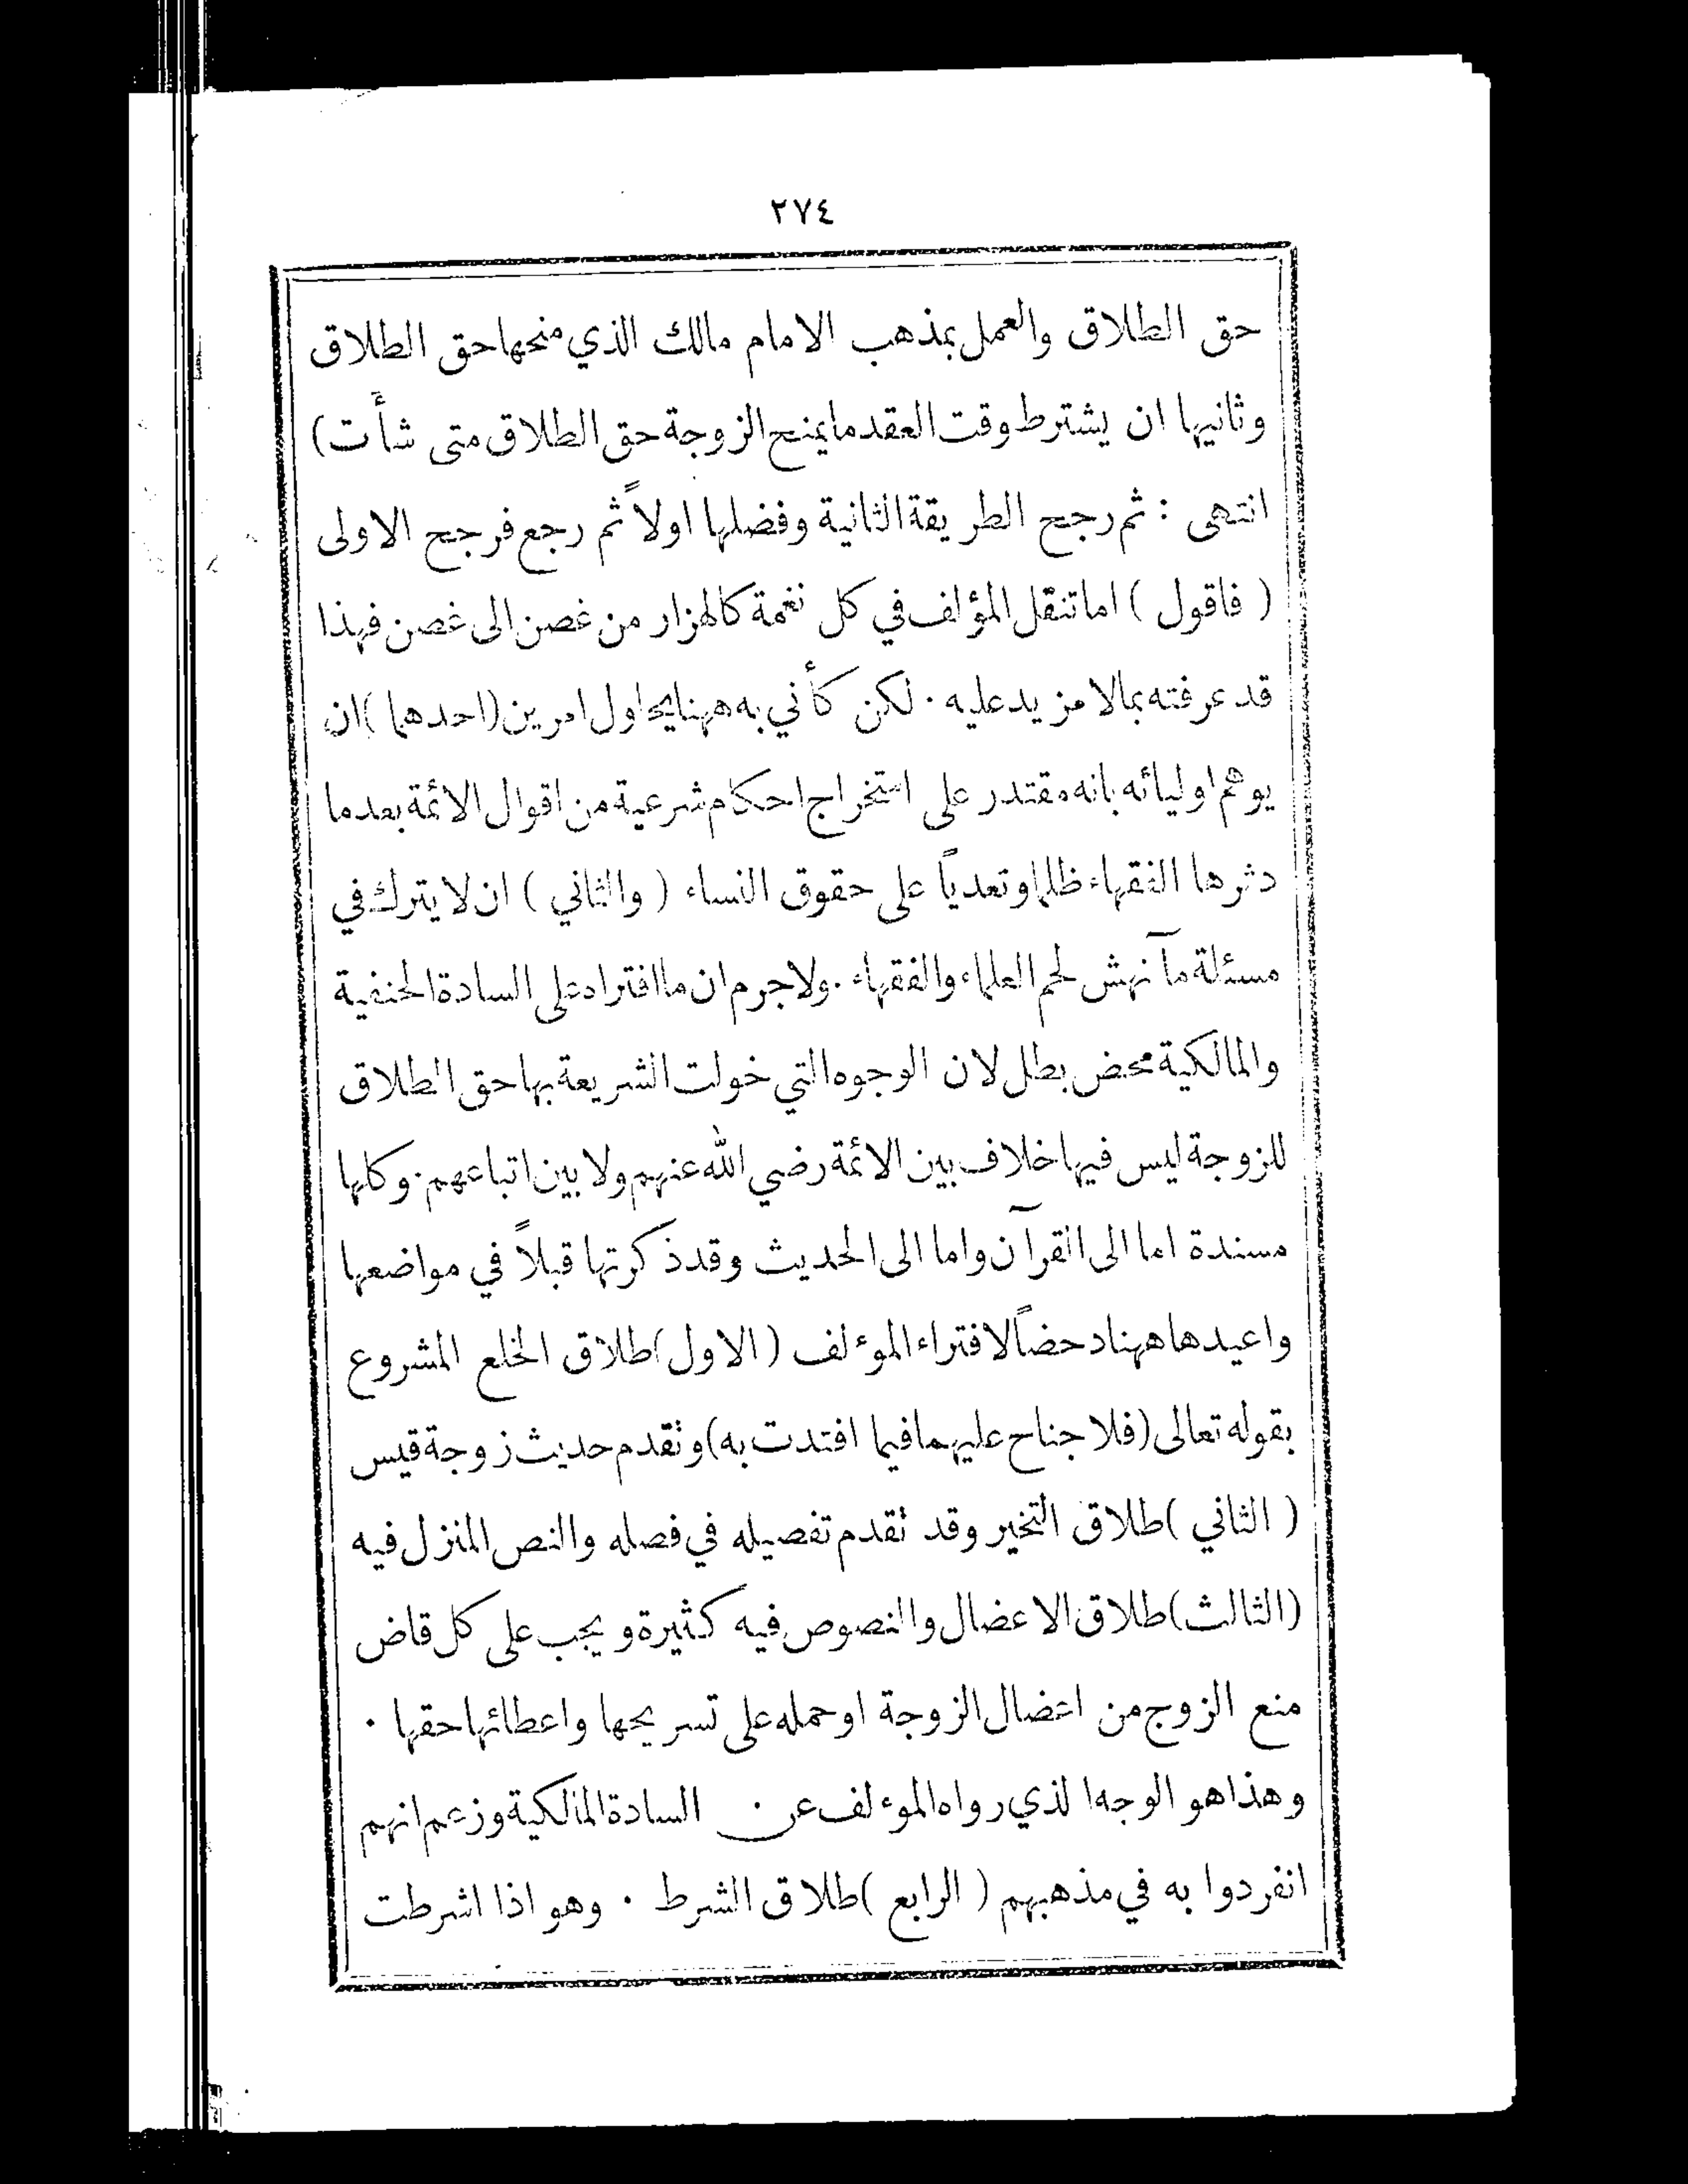 ٢٧٤
حق الطلاق والعمل بمذهب الامام مالك الذي منحها حق الطلاق
وثانيها ان يشترط وقت العقد ما يمنح الزوجة حق الطلاق متى شأت)
انتهى : ثم رجح الطريقة الثانية وفضلها اولاً ثم رجع فرجح الاولى
( فاقول ) اما تنقل المؤلف في كل نغمة كالهزار من غصن الى غصن فهذا
قد عرفته بمالا مزيد عليه . لكن كأني به ههنا يحاول امرين (احدهما) ان
يوهم اوليائه بانه مقتدر على استخراج احكام شرعية من اقوال الائمة بعد ما
دثرها الفقهاء ظلما وتعدياً على حقوق النساء ( والثاني ) ان لا يترك في
مسئلة مآ نهش لحم العلماء والفقهاء . ولا جرم ان ما افتراه على السادة الحنفية
والمالكية محض بطل لان الوجوه التي خولت الشريعة بها حق الطلاق
للزوجة ليس فيها خلاف بين الائمة رضي الله عنهم ولا بين اتباعهم . وكلها
مسندة اما الى القرآن واما الى الحديث وقد ذكرتها قبلاً في مواضعها
واعيدها ههنا دحضاً لافتراء الموءلف ( الاول ) طلاق الخلع المشروع
بقوله تعالى (فلا جناح عليهما فيما افتدت به) وتقدم حديث زوجة قيس
( الثاني ) طلاق التخير وقد تقدم تفصيله في فصله والنص المنزل فيه
(الثالث) طلاق الاعضال والنصوص فيه كثيرة ويجب على كل قاض
منع الزوج من اعضال الزوجة او حمله على تسريحها واعطائها حقها .
وهذا هو الوجه الذي رواه الموءلف عن السادة المالكية وزعم انهم
انفردوا به في مذهبهم ( الرابع ) طلاق الشرط . وهو اذا اشرطت